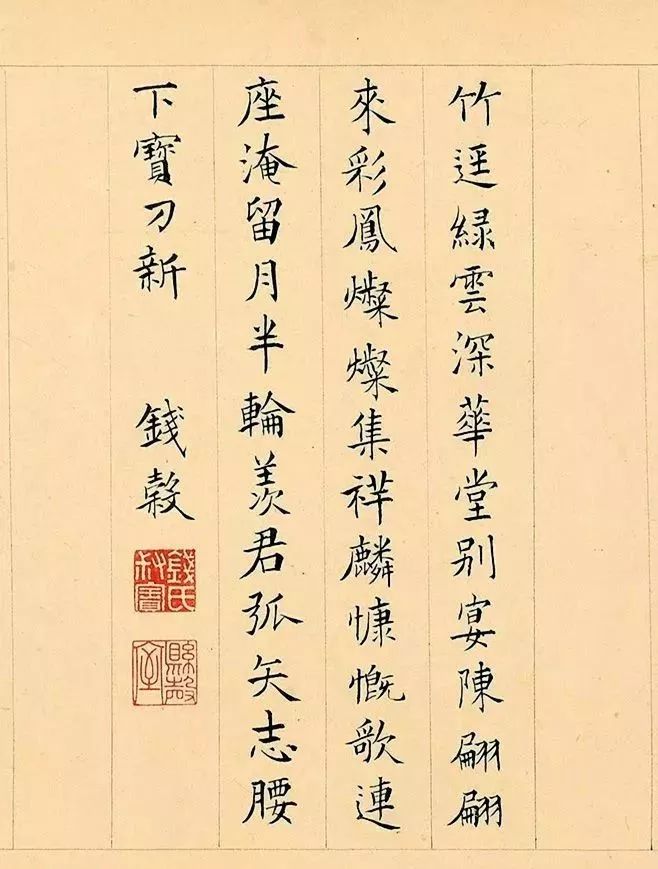 竹逕緑雲深華堂别宴陳翩翩
來彩鳳燦燦集祥麟慷慨歌連
座淹留月半輪羨君弧矢志腰
下寶刀新 錢穀
錢氏叔寶